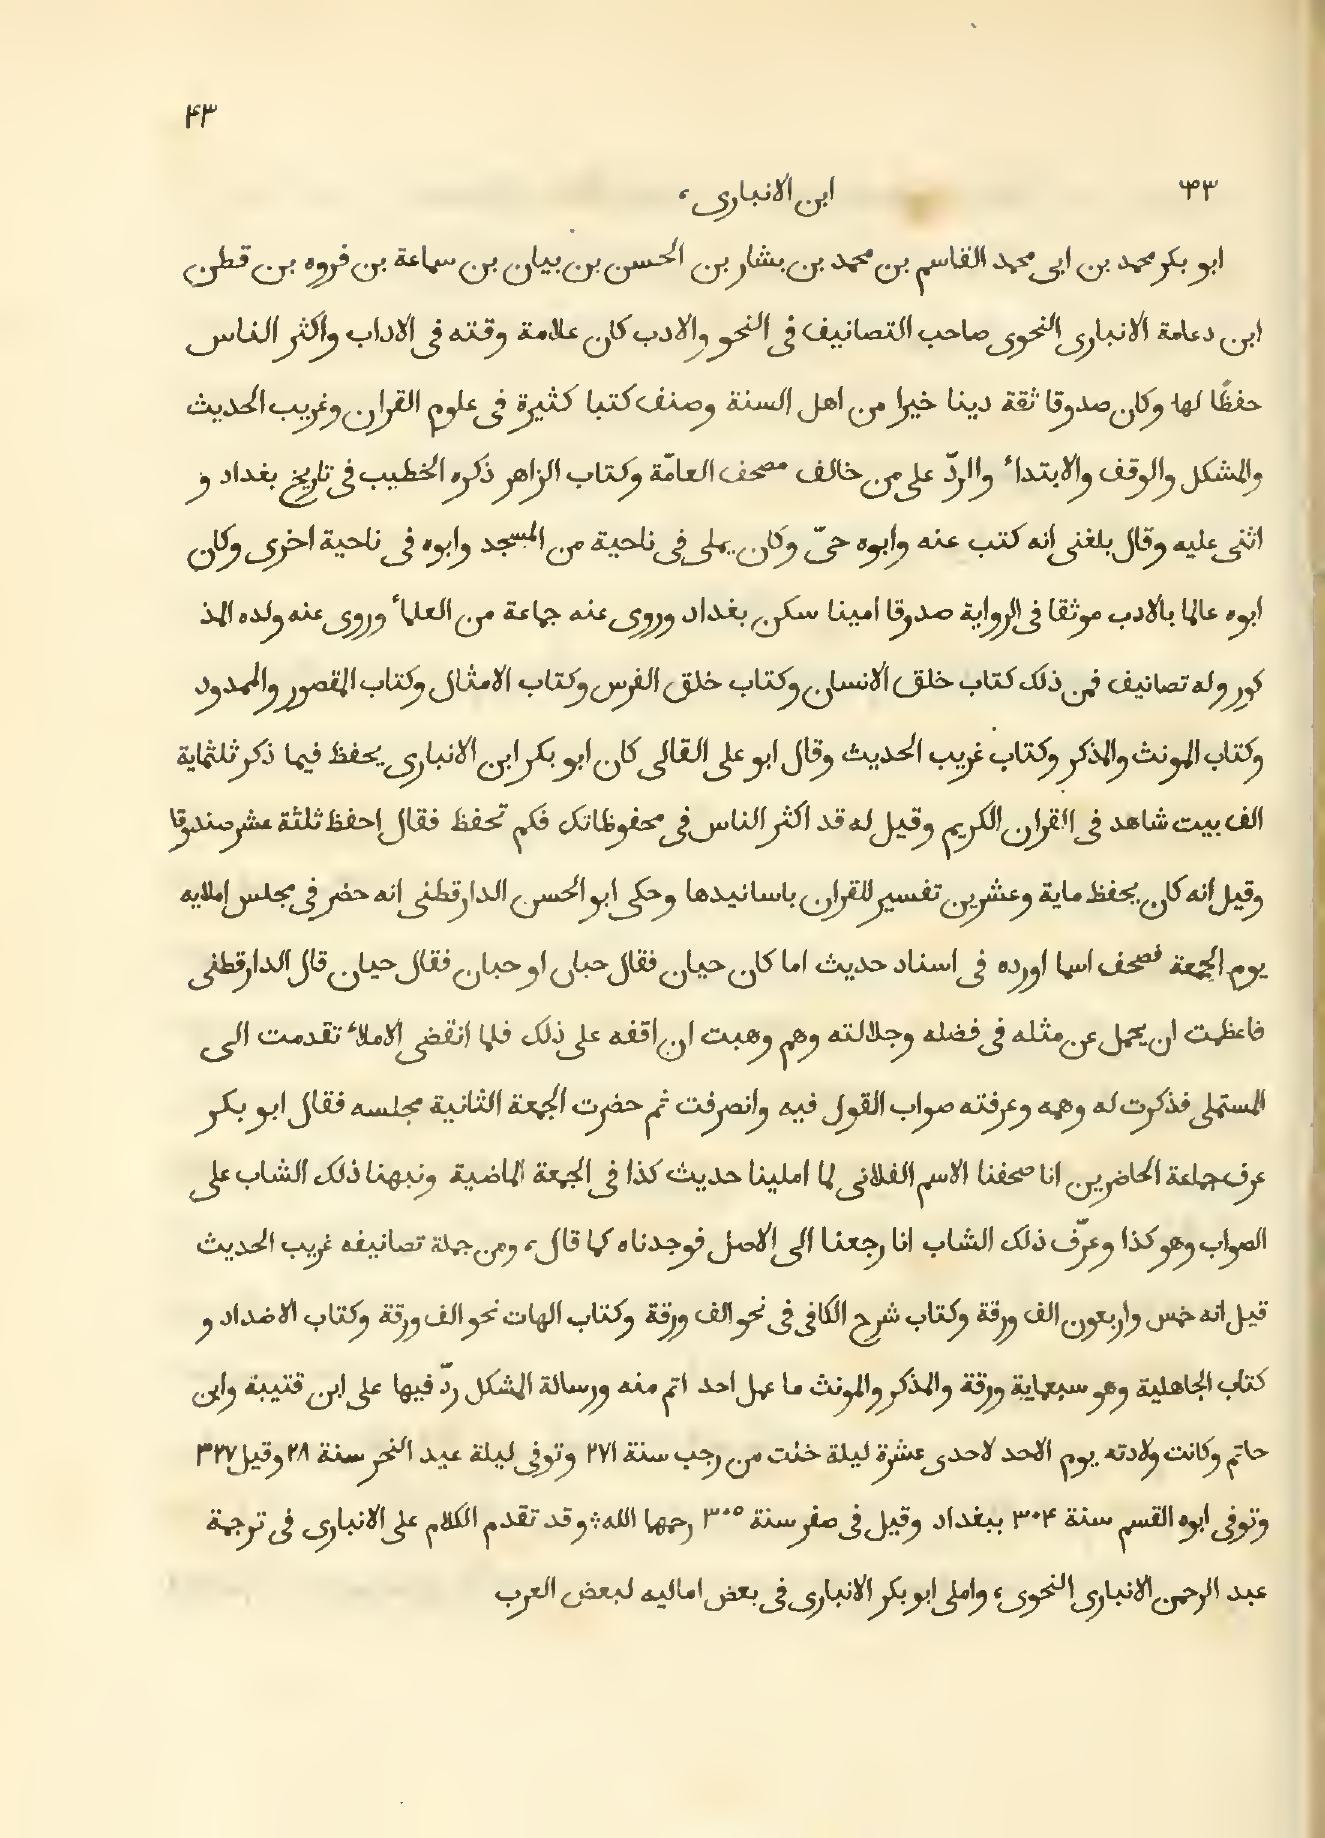 ۴۳
ابن الانبارى، ۶۴۳
ابو بكر محمد بن ابى محمد القاسم بن محمد بن بشار بن الحسن بن بيان بن سماعة بن فروه بن قطن
ابن دعامة الانبارى النحوى صاحب التصانيف فى النحو والادب كان علامة وقته فى الاداب واكثر الناس
حفظًا لها وكان صدوقا ثقة دينا خيرا من اهل السنة وصنف كتبا كثيرة فى علوم القران وغريب الحديث
والمشكل والوقف والابتداء والردّ على من خالف مصحف العامّة وكتاب الزاهر ذكره الخطيب فى تاريخ بغداد و
اثنى عليه وقال بلغنى انه كتب عنه وابوه حىّ وكان يملى فى ناحية من المسجد وابوه فى ناحية اخرى وكان
ابوه عالما بالادب موثقا فى الرواية صدوقا امينا سكن بغداد وروى عنه جماعة من العلماء وروى عنه ولده المذ
كور وله تصانيف فمن ذلك كتاب خلق الانسان وكتاب خلق الفرس وكتاب الامثال وكتاب المقصور والممدود
وكتاب المونث والمذكر وكتاب غريب الحديث وقال ابو على القالى كان ابو بكر ابن الانبارى يحفظ فيما ذكر ثلثماية
الف بيت شاهد فى القران الكريم وقيل له قد اكثر الناس فى محفوظاتك فكم تحفظ فقال احفظ ثلثة عشر صندوقا
وقيل انه كان يحفظ ماية وعشرين تفسير للقران باسانيدها وحكى ابو الحسن الدارقطنى انه حضر فى مجلس املايه
يوم الجمعة فصحف اسما اورده فى اسناد حديث اما كان حيان فقال حبان او حبان فقال حيان قال الدارقطنى
فاعظمت ان يحمل عن مثله فى فضله وجلالته وهم وهبت ان اقفه على ذلك فلما انقضى الاملاء تقدمت الى
المستملى فذكرت له وهمه وعرفته صواب القول فيه وانصرفت ثم حضرت الجمعة الثانية مجلسه فقال ابو بكر
عرف جماعة الحاضرين انا صحفنا الاسم الفلانى لما املينا حديث كذا فى الجمعة الماضية ونبهنا ذلك الشاب على
الصواب وهو كذا وعرّف ذلك الشاب انا رجعنا الى الاصل فوجدناه كما قال، ومن جملة تصانيفه غريب الحديث
قيل انه خمس واربعون الف ورقة وكتاب شرح الكافى فى نحو الف ورقة وكتاب الهات نحو الف ورقة وكتاب الاضداد و
كتاب الجاهلية وهو سبعماية ورقة والمذكر والمونث ما عمل احد اتم منه ورسالة المشكل ردّ فيها على ابن قتيبة وابن
حاتم وكانت ولادته يوم الاحد لاحدى عشرة ليلة خلت من رجب سنة ۲۷۱ وتوفى ليلة عيد النحر سنة ۲۸ وقيل ۳۲۷
وتوفى ابوه القسم سنة ۳۰۴ ببغداد وقيل فى صفر سنة ۳۰۵ رحمها الله؛ وقد تقدم الكلام على الانبارى فى ترجمة
عبد الرحمن الانبارى النحوى، واملى ابو بكر الانبارى فى بعض اماليه لبعض العرب